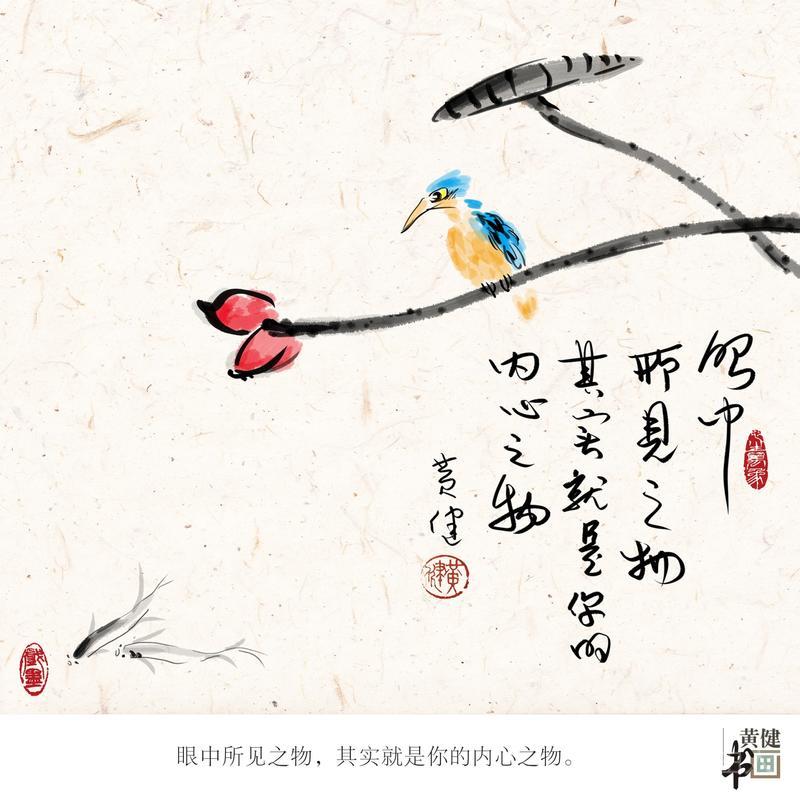 眼中
所見之物
其实就是你的
内心之物
黄健
黄健
戲墨
眼中所见之物，其实就是你的内心之物。
黄健
书画